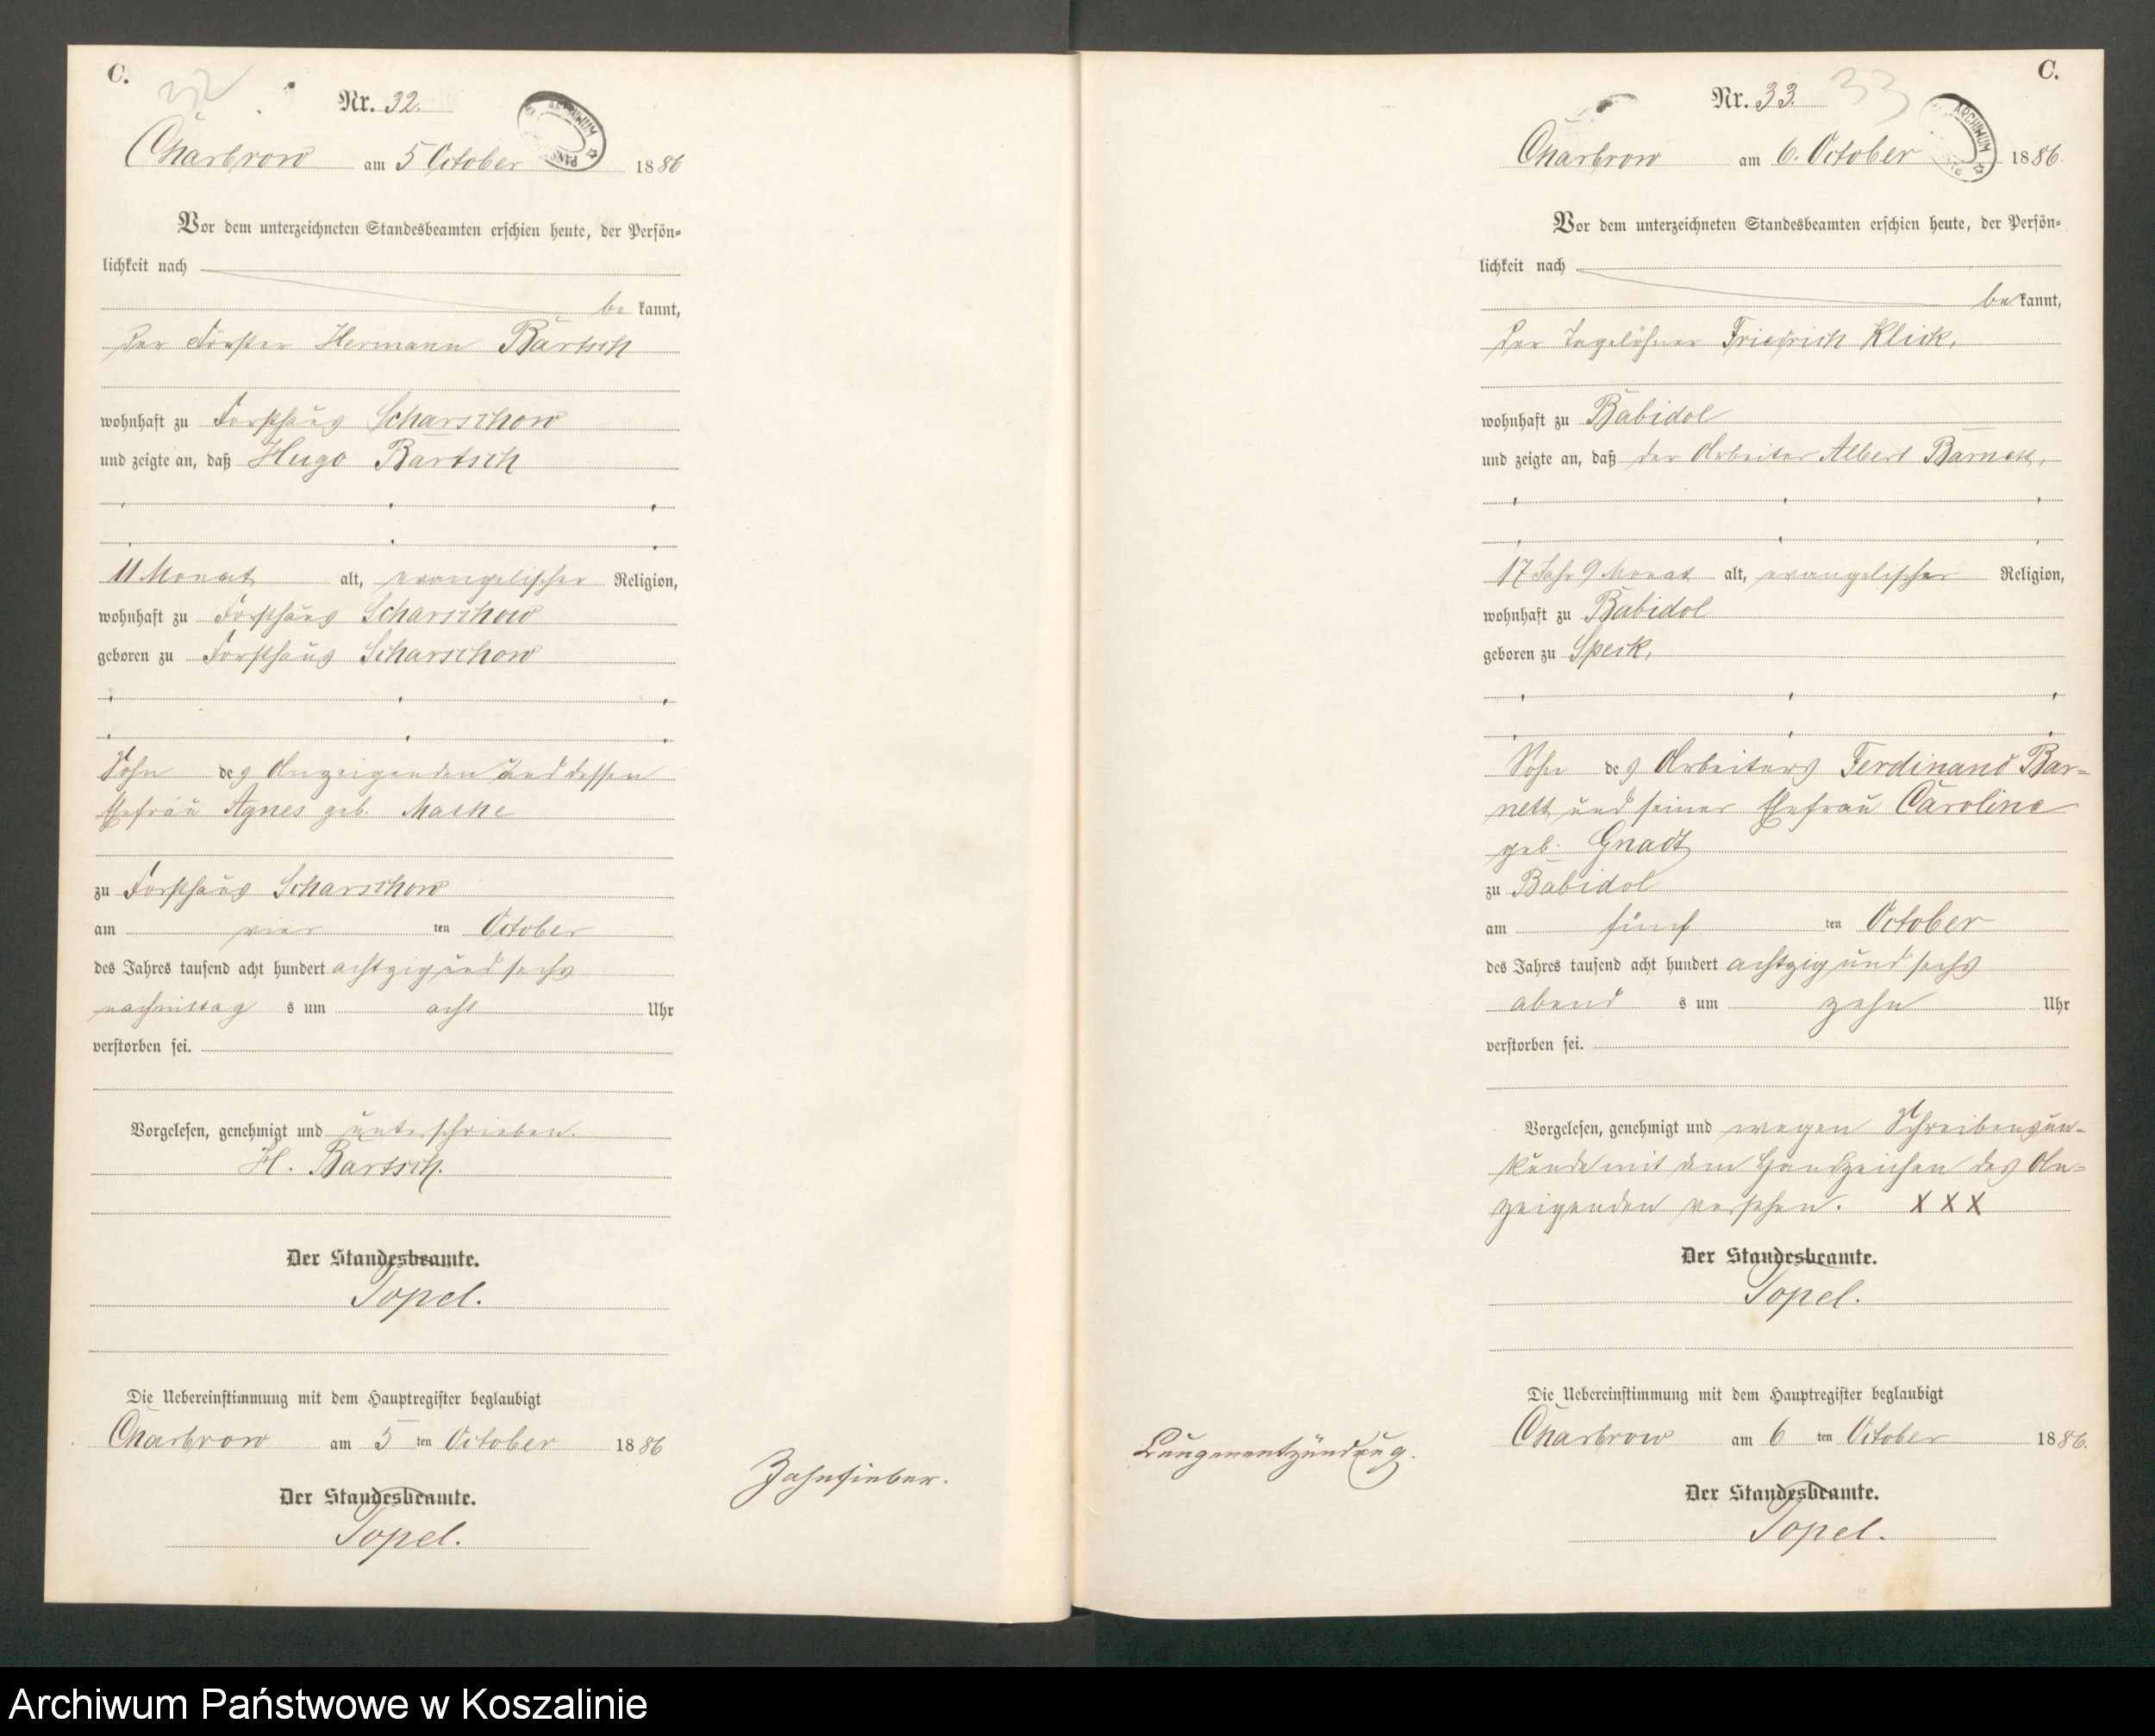 C.
32
Nr. 32.
ARCHIWUM
Charbrow am 5 October 1886
Vor dem unterzeichneten Standesbeamten erschien heute, der Persön-
lichkeit nach
be kannt,
der Förster Hermann Bartsch
wohnhaft zu Forsthaus Scharschow
und zeigte an, daß Hugo Bartsch
11 Monat alt, evangelischer Religion,
wohnhaft zu Forsthaus Scharschow
geboren zu Forsthaus Scharschow
Sohn des Anzeigenden und dessen
Ehefrau Agnes geb.
zu Forsthaus Scharschow
am vier ten October
des Jahres tausend acht hundert achtzig und sechs
nachmittag s um acht Uhr
verstorben sei.
Vorgelesen, genehmigt und unterschrieben.
H. Bartsch.
Der Standesbeamte.
Topel.
Die Uebereinstimmung mit dem Hauptregister beglaubigt
Charbrow am 5 ten October 1886
Der Standesbeamte.
Topel.
Zahnfieber.
C.
33
Nr. 33.
ARCHIWUM
Charbrow am 6. October 1886.
Vor dem unterzeichneten Standesbeamten erschien heute, der Persön-
lichkeit nach
be kannt,
der Tagelöhner Friedrich Klick,
wohnhaft zu Babidol
und zeigte an, daß der Arbeiter Albert Barnett,
17 Jahr 9 Monat alt, evangelischer Religion,
wohnhaft zu Babidol
geboren zu Speck,
Sohn des Arbeiters Ferdinand Bar-
nett und seiner Ehefrau Caroline
geb. Gnadt
zu Babidol
am fünf ten October
des Jahres tausend acht hundert achtzig und sechs
abend s um zehn Uhr
verstorben sei.
Vorgelesen, genehmigt und wegen Schreibensun-
kunde mit dem Handzeichen des An-
zeigenden versehen. X X X
Der Standesbeamte.
Topel.
Die Uebereinstimmung mit dem Hauptregister beglaubigt
Charbrow am 6 ten October 1886.
Der Standesbeamte.
Topel.
Lungenentzündung.
Archiwum Państwowe w Koszalinie